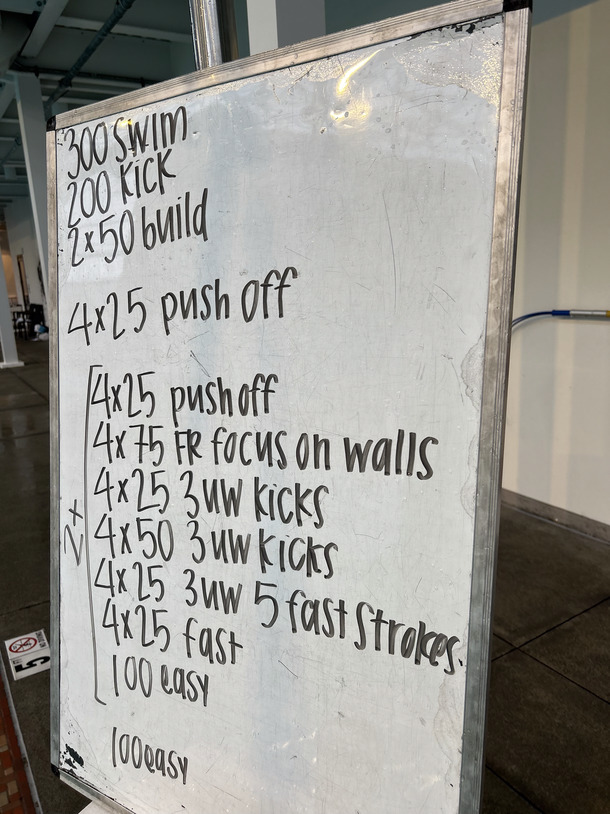 300 SWIM
200 KICK
2x50 build
4x25 push off
2x
4x25 push off
4x75 FR focus on walls
4x25 3uw kicks
4x50 3uw kicks
4x25 3uw 5 fast strokes.
4x25 fast
100 easy
100 easy